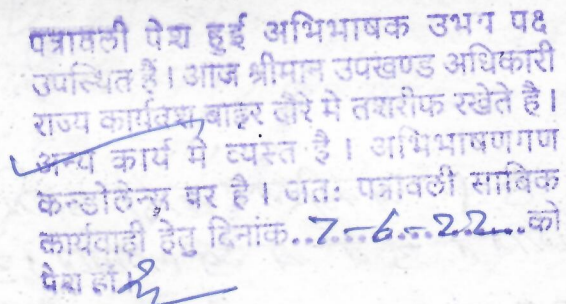 पत्रावली पेश हुई अभिभाषक उभय पक्ष
उपस्थित हैं। आज श्रीमान उपखण्ड अधिकारी
राज्य कार्यवश बाहर दौरे मे तशरीफ रखेते है।
अन्य कार्य मे व्यस्त है। अभिभाषणगण
कन्डोलेन्स पर है। अतः पत्रावली साबिक
कार्यवाही हेतु दिनांक..7-6-22...को
पेश हों।